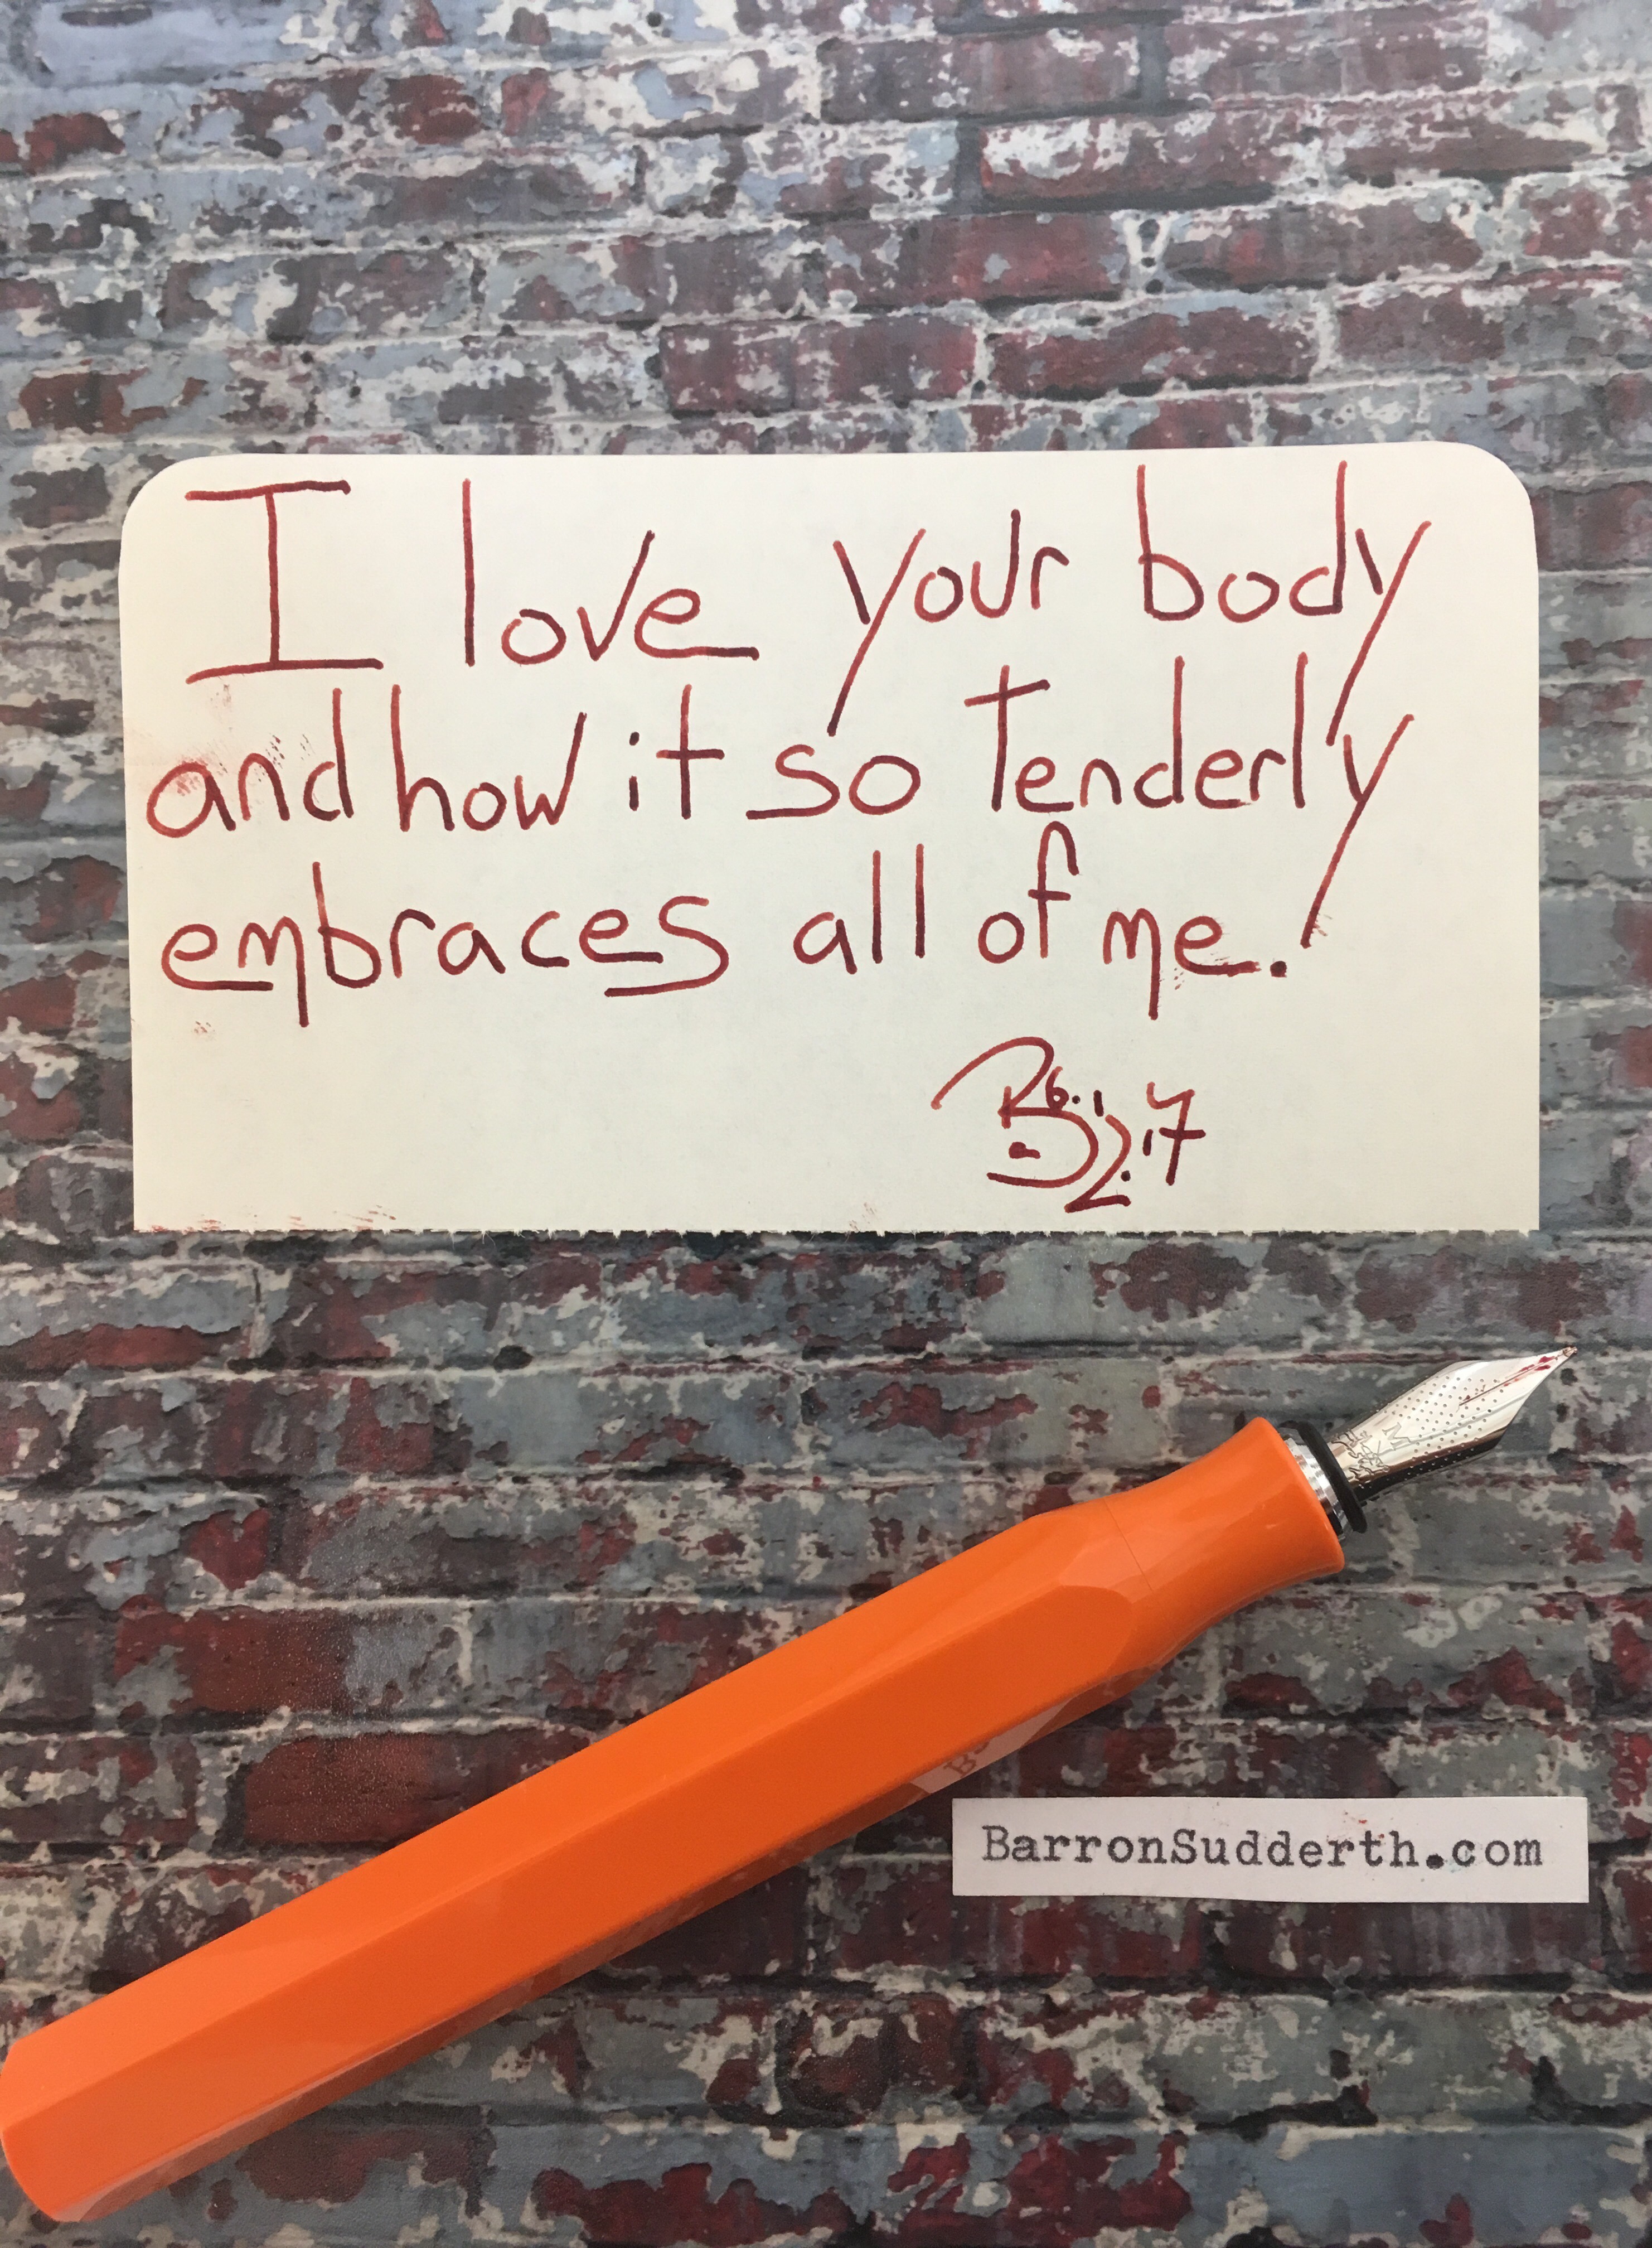 I love your body
and how it so tenderly
embraces all of me.
BarronSudderth.com